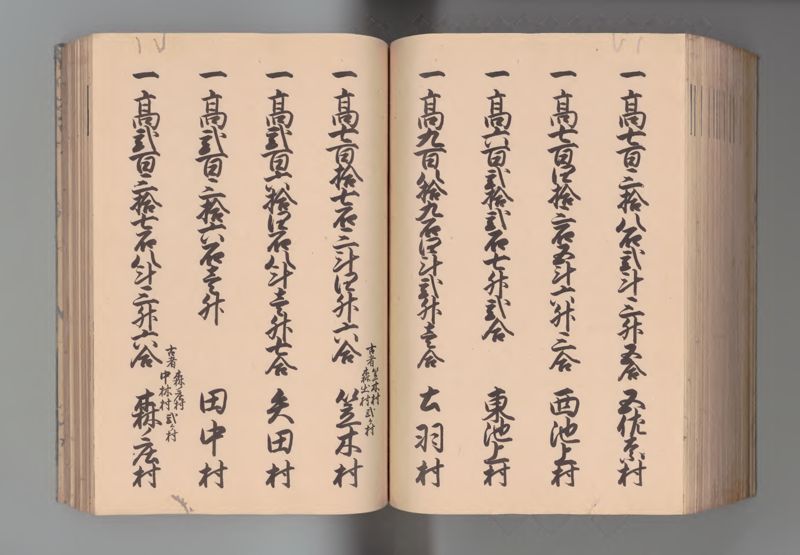 一 高七百三拾八石弐斗三升五合 五作谷村
一 高七百四拾三石五斗六升三合 西池上村
一 高六百弐拾弐石七升弐合 東池上村
一 高九百八拾九石四斗弐升壱合 古羽村
一 高七百拾七石三斗四升六合 笠木村
古者 笠木村 森山村 弐ヶ村
一 高弐百六拾四石八斗壱升七合 矢田村
一 高弐百三拾六石壱升 田中村
一 高弐百三拾七石八斗三升六合 森ノ庄村
古者 森ノ庄村 中林村 弐ヶ村